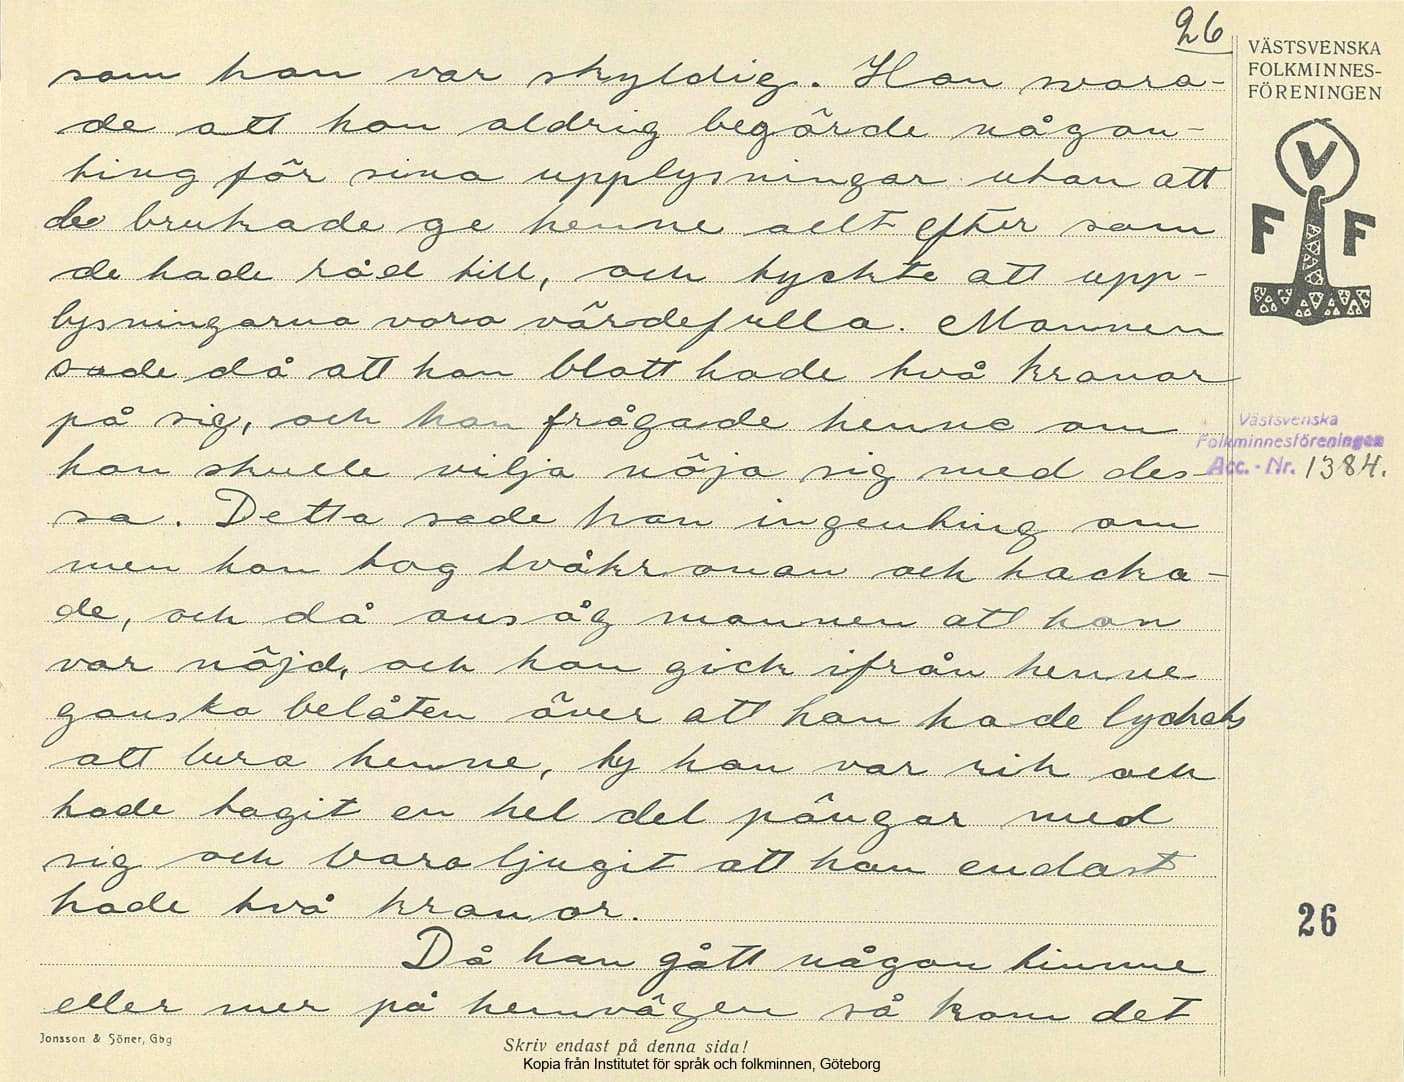 26
som han var skyldig. Hon svara-
de att hon aldrig begärde någon-
ting för sina upplysningar utan att
de brukade ge henne allt efter som
de hade råd till, och tyckte att upp-
lysningarna voro värdefulla. Mannen
sade då att han blott hade två kronor
på sig, och han frågade henne om
hon skulle vilja nöja sig med des-
sa. Detta sade hon ingenting om
men hon tog tvåkronan och tacka-
de, och då ansåg mannen att hon
var nöjd, och han gick ifrån henne
ganska belåten över att han hade lyckats
att lura henne, ty han var rik och
hade tagit en hel del pängar med
sig och bara ljugit att han endast
hade två kronor.
Då han gått någon timme
eller mer på hemvägen så kom det
VÄSTSVENSKA
FOLKMINNES-
FÖRENINGEN
V
F F
Västsvenska
Folkminnesföreningen
Acc. - Nr. 1384.
26
Jonsson & Söner, Gbg
Skriv endast på denna sida!
Kopia från Institutet för språk och folkminnen, Göteborg